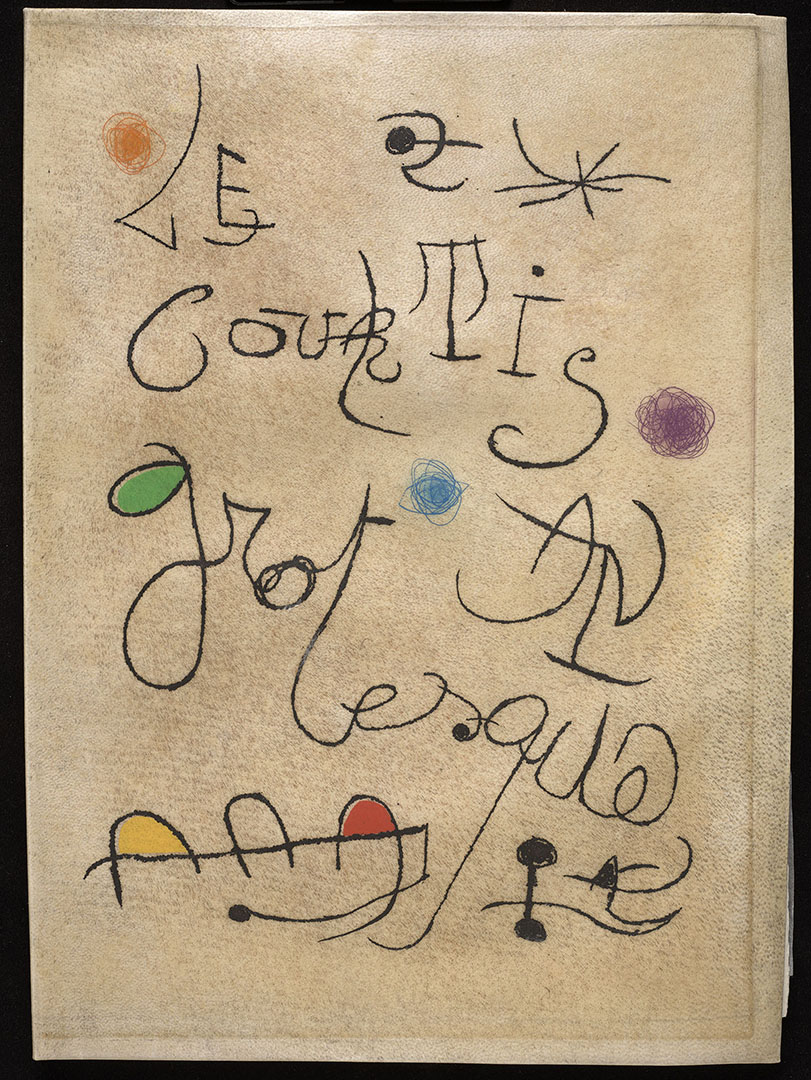 LE
CouRTiS
AN
grotesque